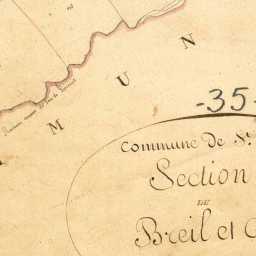 M U N
-35-
Commune de St
Section
DU
Breil et